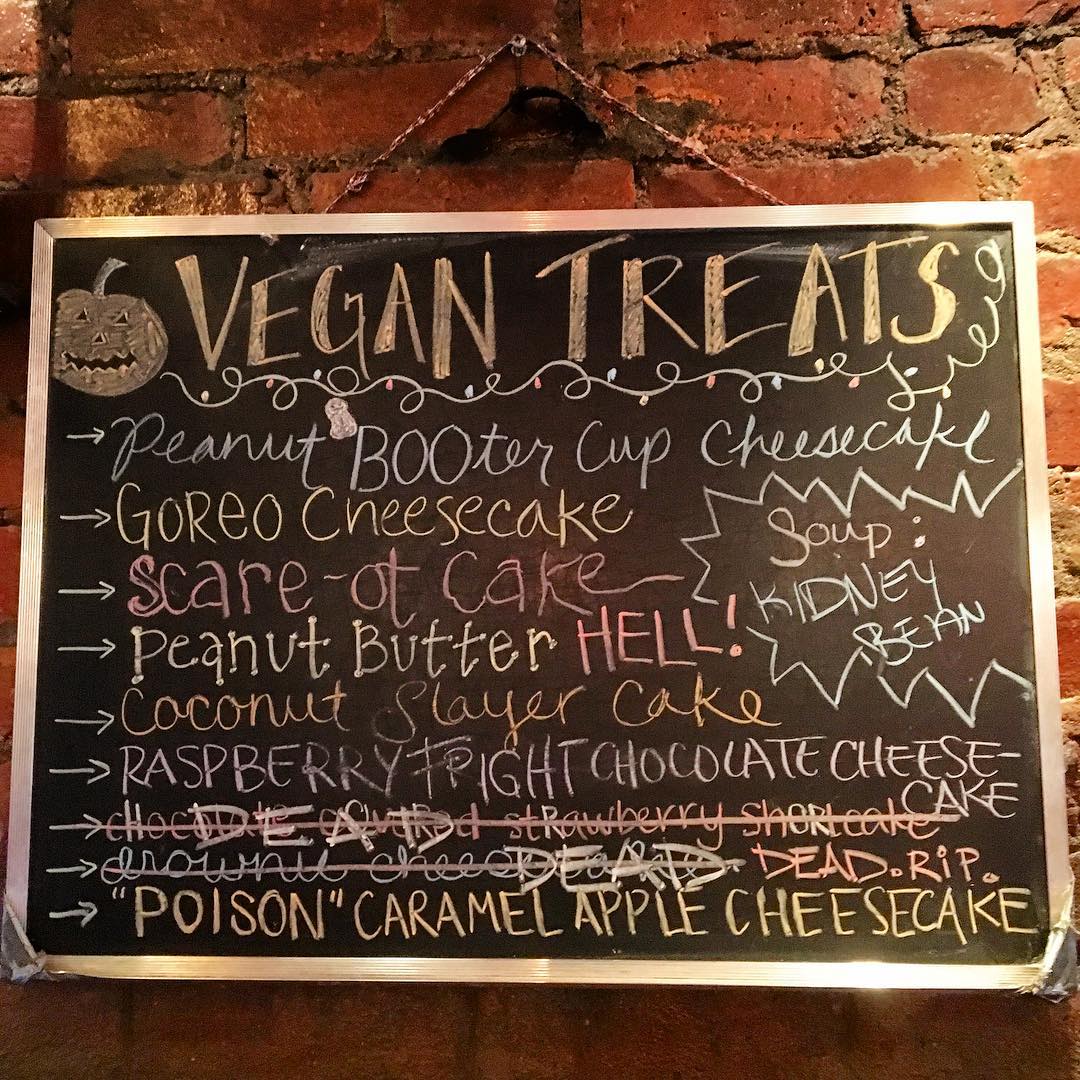 VEGAN TREATS
→ Peanut BOOter Cup Cheesecake
→ GOREO Cheesecake
Soup:
KIDNEY
BEAN
→ Scare-ot Cake
→ Peanut Butter HELL!
→ Coconut Slayer Cake
→ RASPBERRY FRIGHT CHOCOLATE CHEESE-
CAKE
→ chocolate covered strawberry shortcake
DEAD
→ brownie cheesecake DEAD. RIP.
DEAD
→ "POISON" CARAMEL APPLE CHEESECAKE